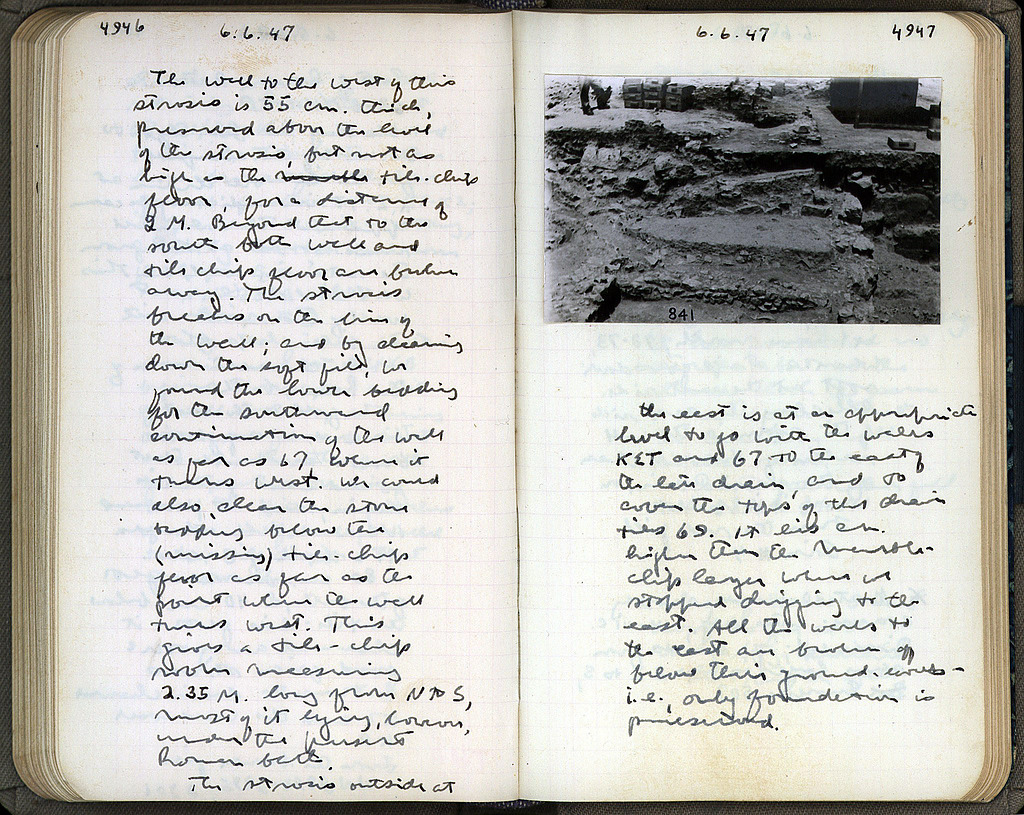 4946 6.6.47
The wall to the west of this
strosis is 55 cm. thick,
preserved above the level
of the strosis, but not as
high as the marble tile-chip
floor, for a distance of
2 M. Beyond that to the
south both wall and
tile chip floor are broken
away. The strosis
breaks on the line of
the wall; and by cleaning
down the soft fill, we
found the lower bedding
for the southward
continuation of the wall
as far as 67, where it
turns west. We could
also clear the stone
bedding below the
(missing) tile-chip
floor as far as the
point where the wall
turns west. This
gives a tile-chip
room measuring
2.35 M. long from N to S,
most of it lying, however,
under the present
Roman bath.
The strosis outside at
6.6.47 4947
841
the east is at an appropriate
level to go with the walls
KET and 67 to the east of
the late drain, and to
cover the tops of the drain
tiles 69. It lies cm.
higher than the marble-
chip layer where we
stopped digging to the
east. All the walls to
the east are broken off
below this ground-level -
i.e., only foundation is
preserved.